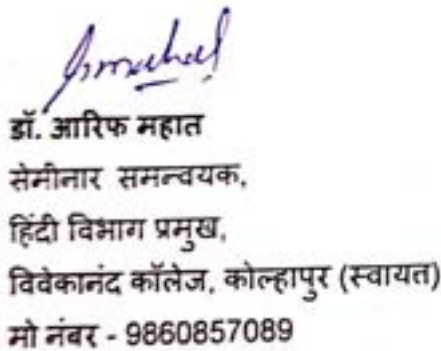 डॉ. आरिफ महात
सेमीनार समन्वयक,
हिंदी विभाग प्रमुख,
विवेकानंद कॉलेज, कोल्हापुर (स्वायत)
मो नंबर - 9860857089